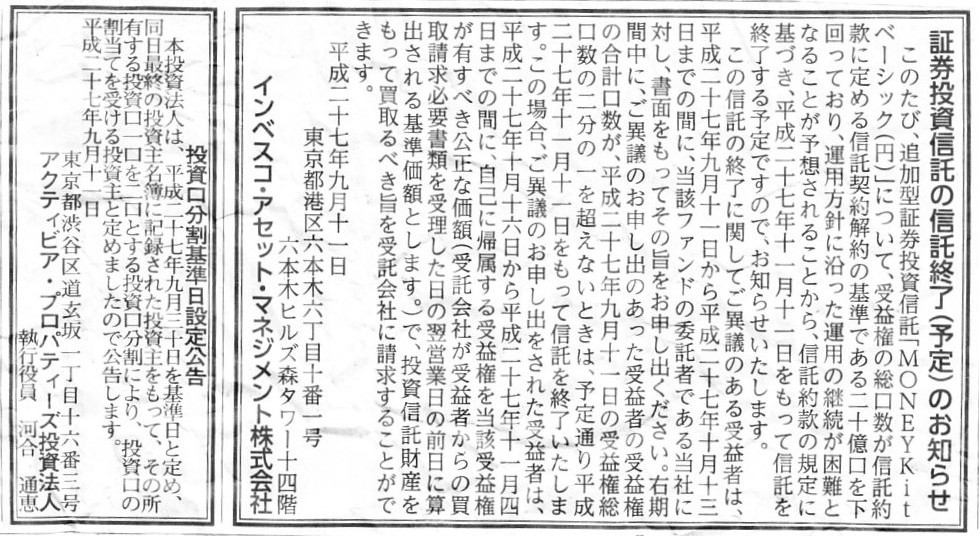 証券投資信託の信託終了(予定)のお知らせ
このたび、追加型証券投資信託「MONEYKit
ベーシック(円)」について、受益権の総口数が信託約
款に定める信託契約解約の基準である二十億口を下
回っており、運用方針に沿った運用の継続が困難と
なることが予想されることから、信託約款の規定に
基づき、平成二十七年十一月十二日をもって信託を
終了する予定ですので、お知らせいたします。
この信託の終了に関して、ご異議のある受益者は、
平成二十七年九月十一日から平成二十七年十月十三
日までの間に、当該ファンドの委託者である当社に
対し、書面をもってその旨をお申し出ください。右期
間中に、ご異議のお申し出のあった受益者の受益権
の合計口数が、平成二十七年九月十一日の受益権総
口数の二分の一を超えないときは、予定通り平成
二十七年十一月十二日をもって信託を終了いたしま
す。この場合、ご異議のお申し出をされた受益者は、
平成二十七年十月十六日から平成二十七年十一月四
日までの間に、自己に帰属する受益権を当該受益権
が有すべき公正な価額(受託会社が受益者からの買
取請求必要書類を受理した日の翌営業日の前日に算
出される基準価額とします。)で、投資信託財産を
もって買取るべき旨を受託会社に請求することがで
きます。
平成二十七年九月十一日
東京都港区六本木六丁目十番一号
六本木ヒルズ森タワー十四階
インベスコ・アセット・マネジメント株式会社
投資口分割基準日設定公告
本投資法人は、平成二十七年九月三十日を基準日と定め、
同日最終の投資主名簿に記録された投資主をもって、その所
有する投資口一口を二口とする投資口分割により、投資口の
割当てを受ける投資主と定めましたので公告します。
平成二十七年九月十一日
東京都渋谷区道玄坂一丁目十六番三号
アクティビア・プロパティーズ投資法人
執行役員 河合 通恵